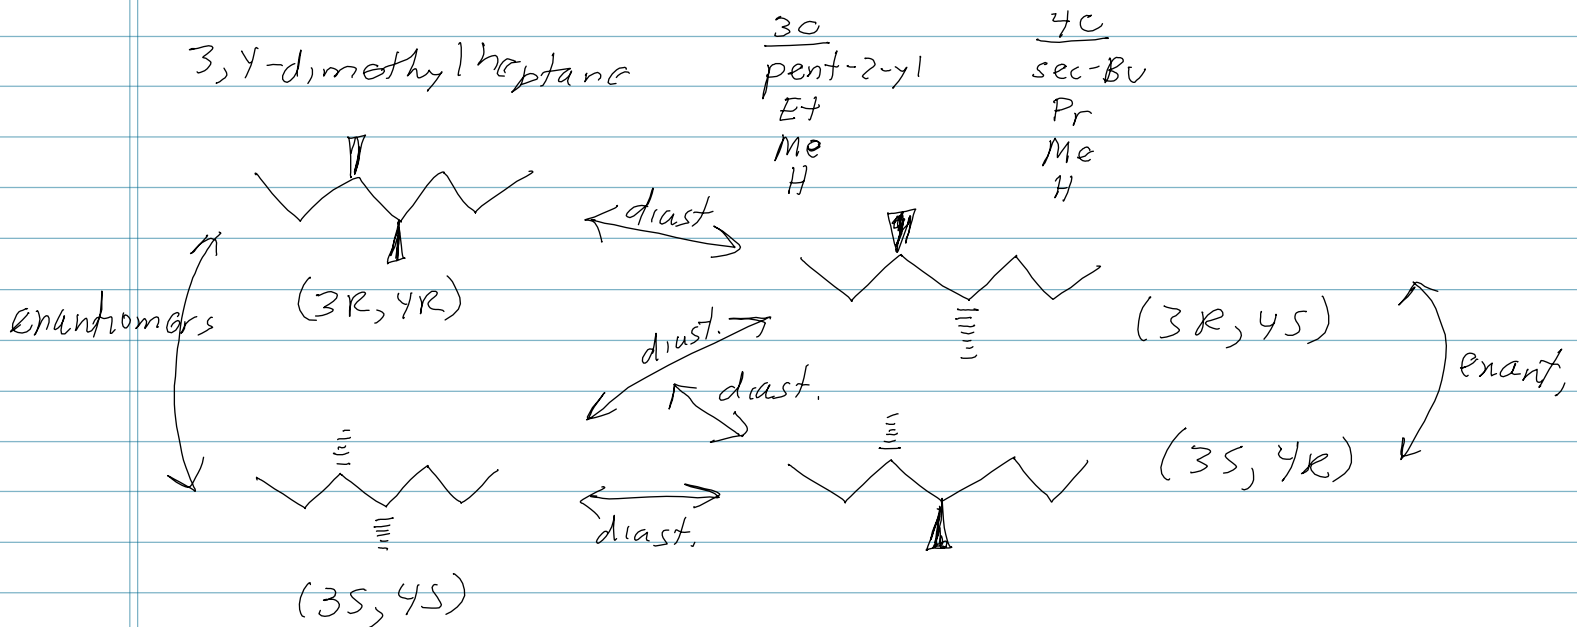 3,4-dimethylheptane
3C
pent-2-yl
Et
Me
H
4C
sec-Bu
Pr
Me
H
diast
(3R,4R)
enantiomers
diast.
diast.
(3R,4S)
enant.
(3S,4R)
diast.
(3S,4S)